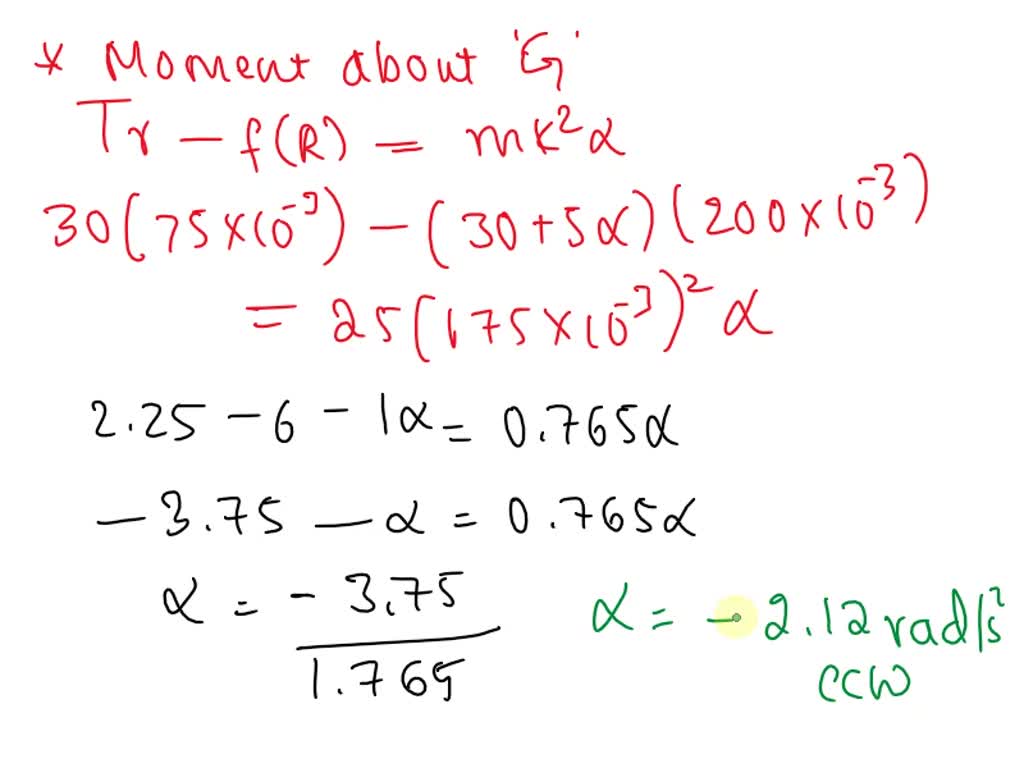 * Moment about 'G'
Tr - f(R) = mk²α
30(75×10⁻³) - (30+5α)(200×10⁻³)
= 25(175×10⁻³)² α
2.25 - 6 - 1α = 0.765α
- 3.75 - α = 0.765α
α = - 3.75 / 1.765
α = - 2.12 rad/s²
CCW